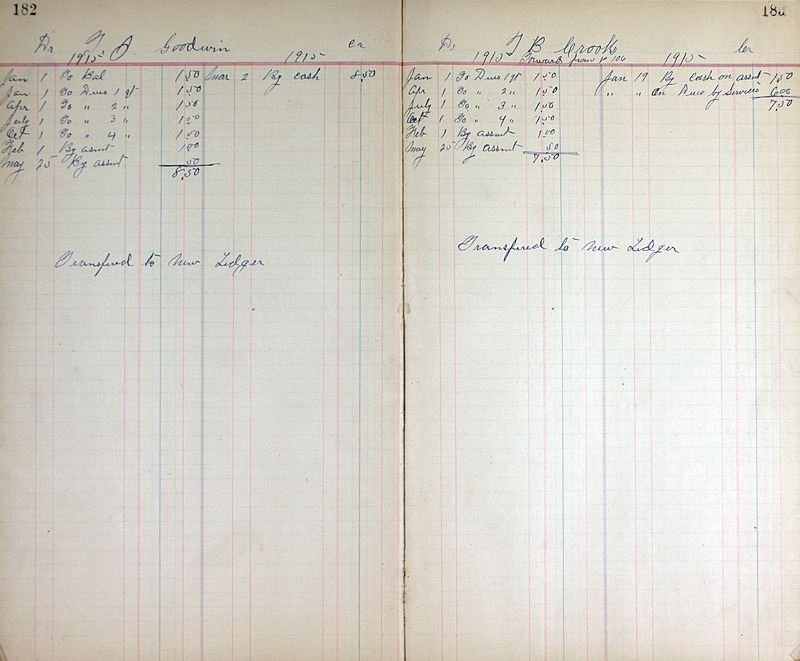 182
Dr T J Goodwin Cr
1915 1915
Jan 1 To Bal 1.50 Mar 2 By cash 8.50
Jan 1 To Dues 1 qt 1.50
Apr 1 To " 2 " 1.50
July 1 To " 3 " 1.50
Oct 1 To " 4 " 1.50
Feb 1 By assmt 1.00
May 25 By assmt .50
8.50
Transfired to New Ledger
183
Dr T B Crooks Cr
1915 Forward from P 106 1915
Jan 1 To Dues 1 qt 1.50 Jan 19 By cash on assmt 1.50
Apr 1 To " 2 " 1.50 " " On Dues by Services 6.00
July 1 To " 3 " 1.50 7.50
Oct 1 To " 4 " 1.50
Feb 1 By assmt 1.00
May 25 By assmt .50
7.50
Transfired to New Ledger